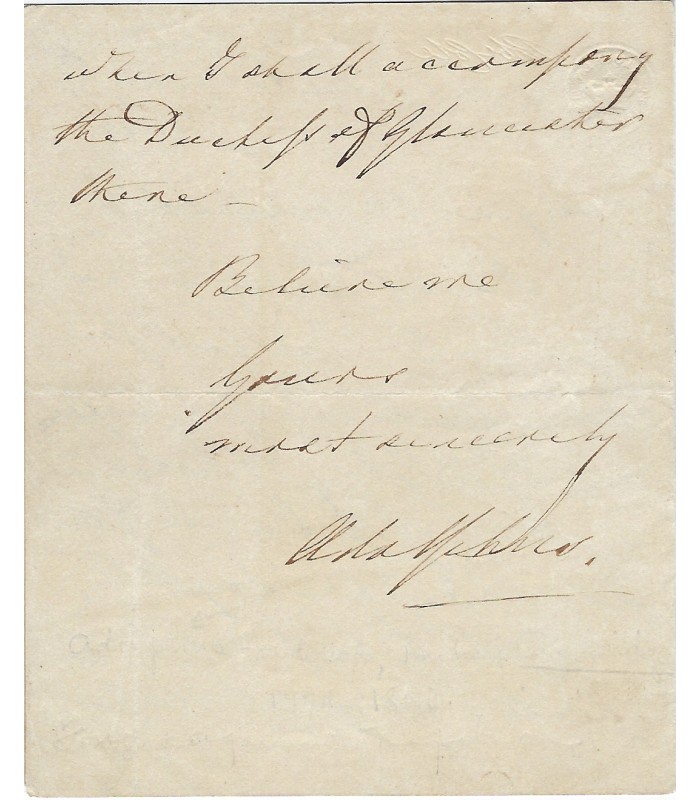 when I shall accompany
the Duchess of Gloucester
there –
Believe me
Yours
most sincerely
Adolphus.